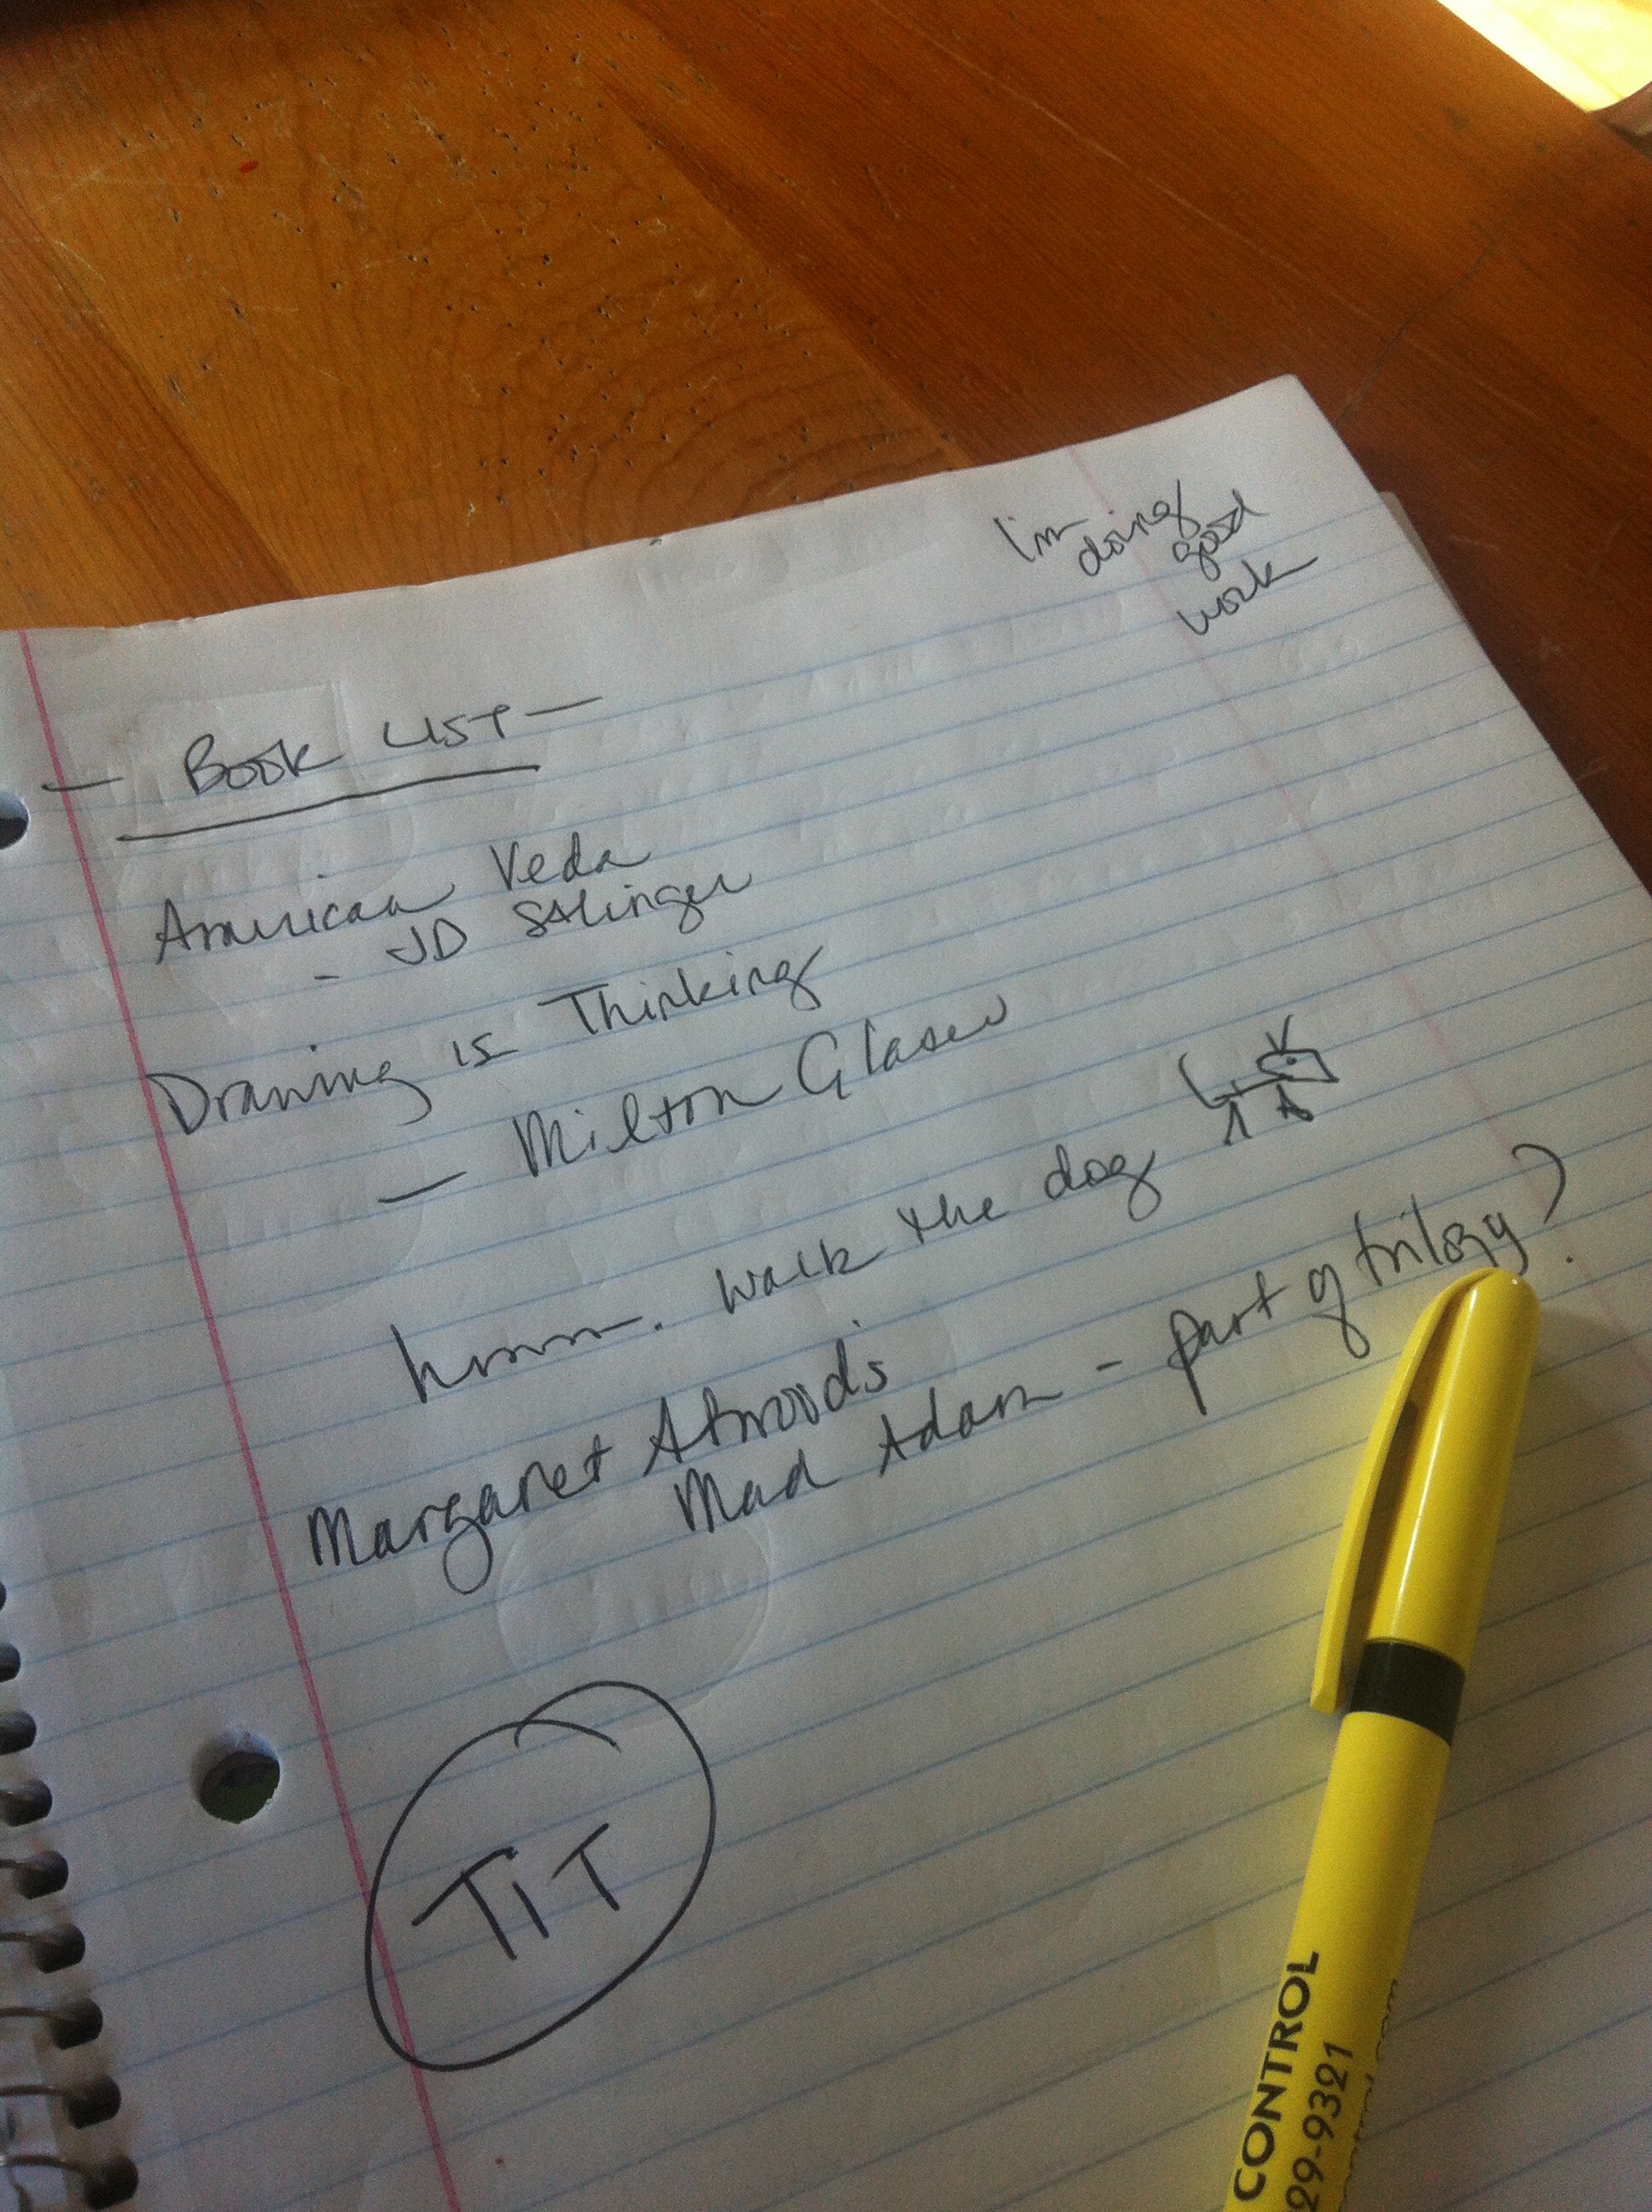 I'm
doing
good
work
- Book LIST -
American Veda
- JD SALinger
Drawing is Thinking
- Milton Glaser
hmmm. walk the dog
Margaret Atwood's
Mad Adam - part of trilogy?
TIT
CONTROL
29-9321